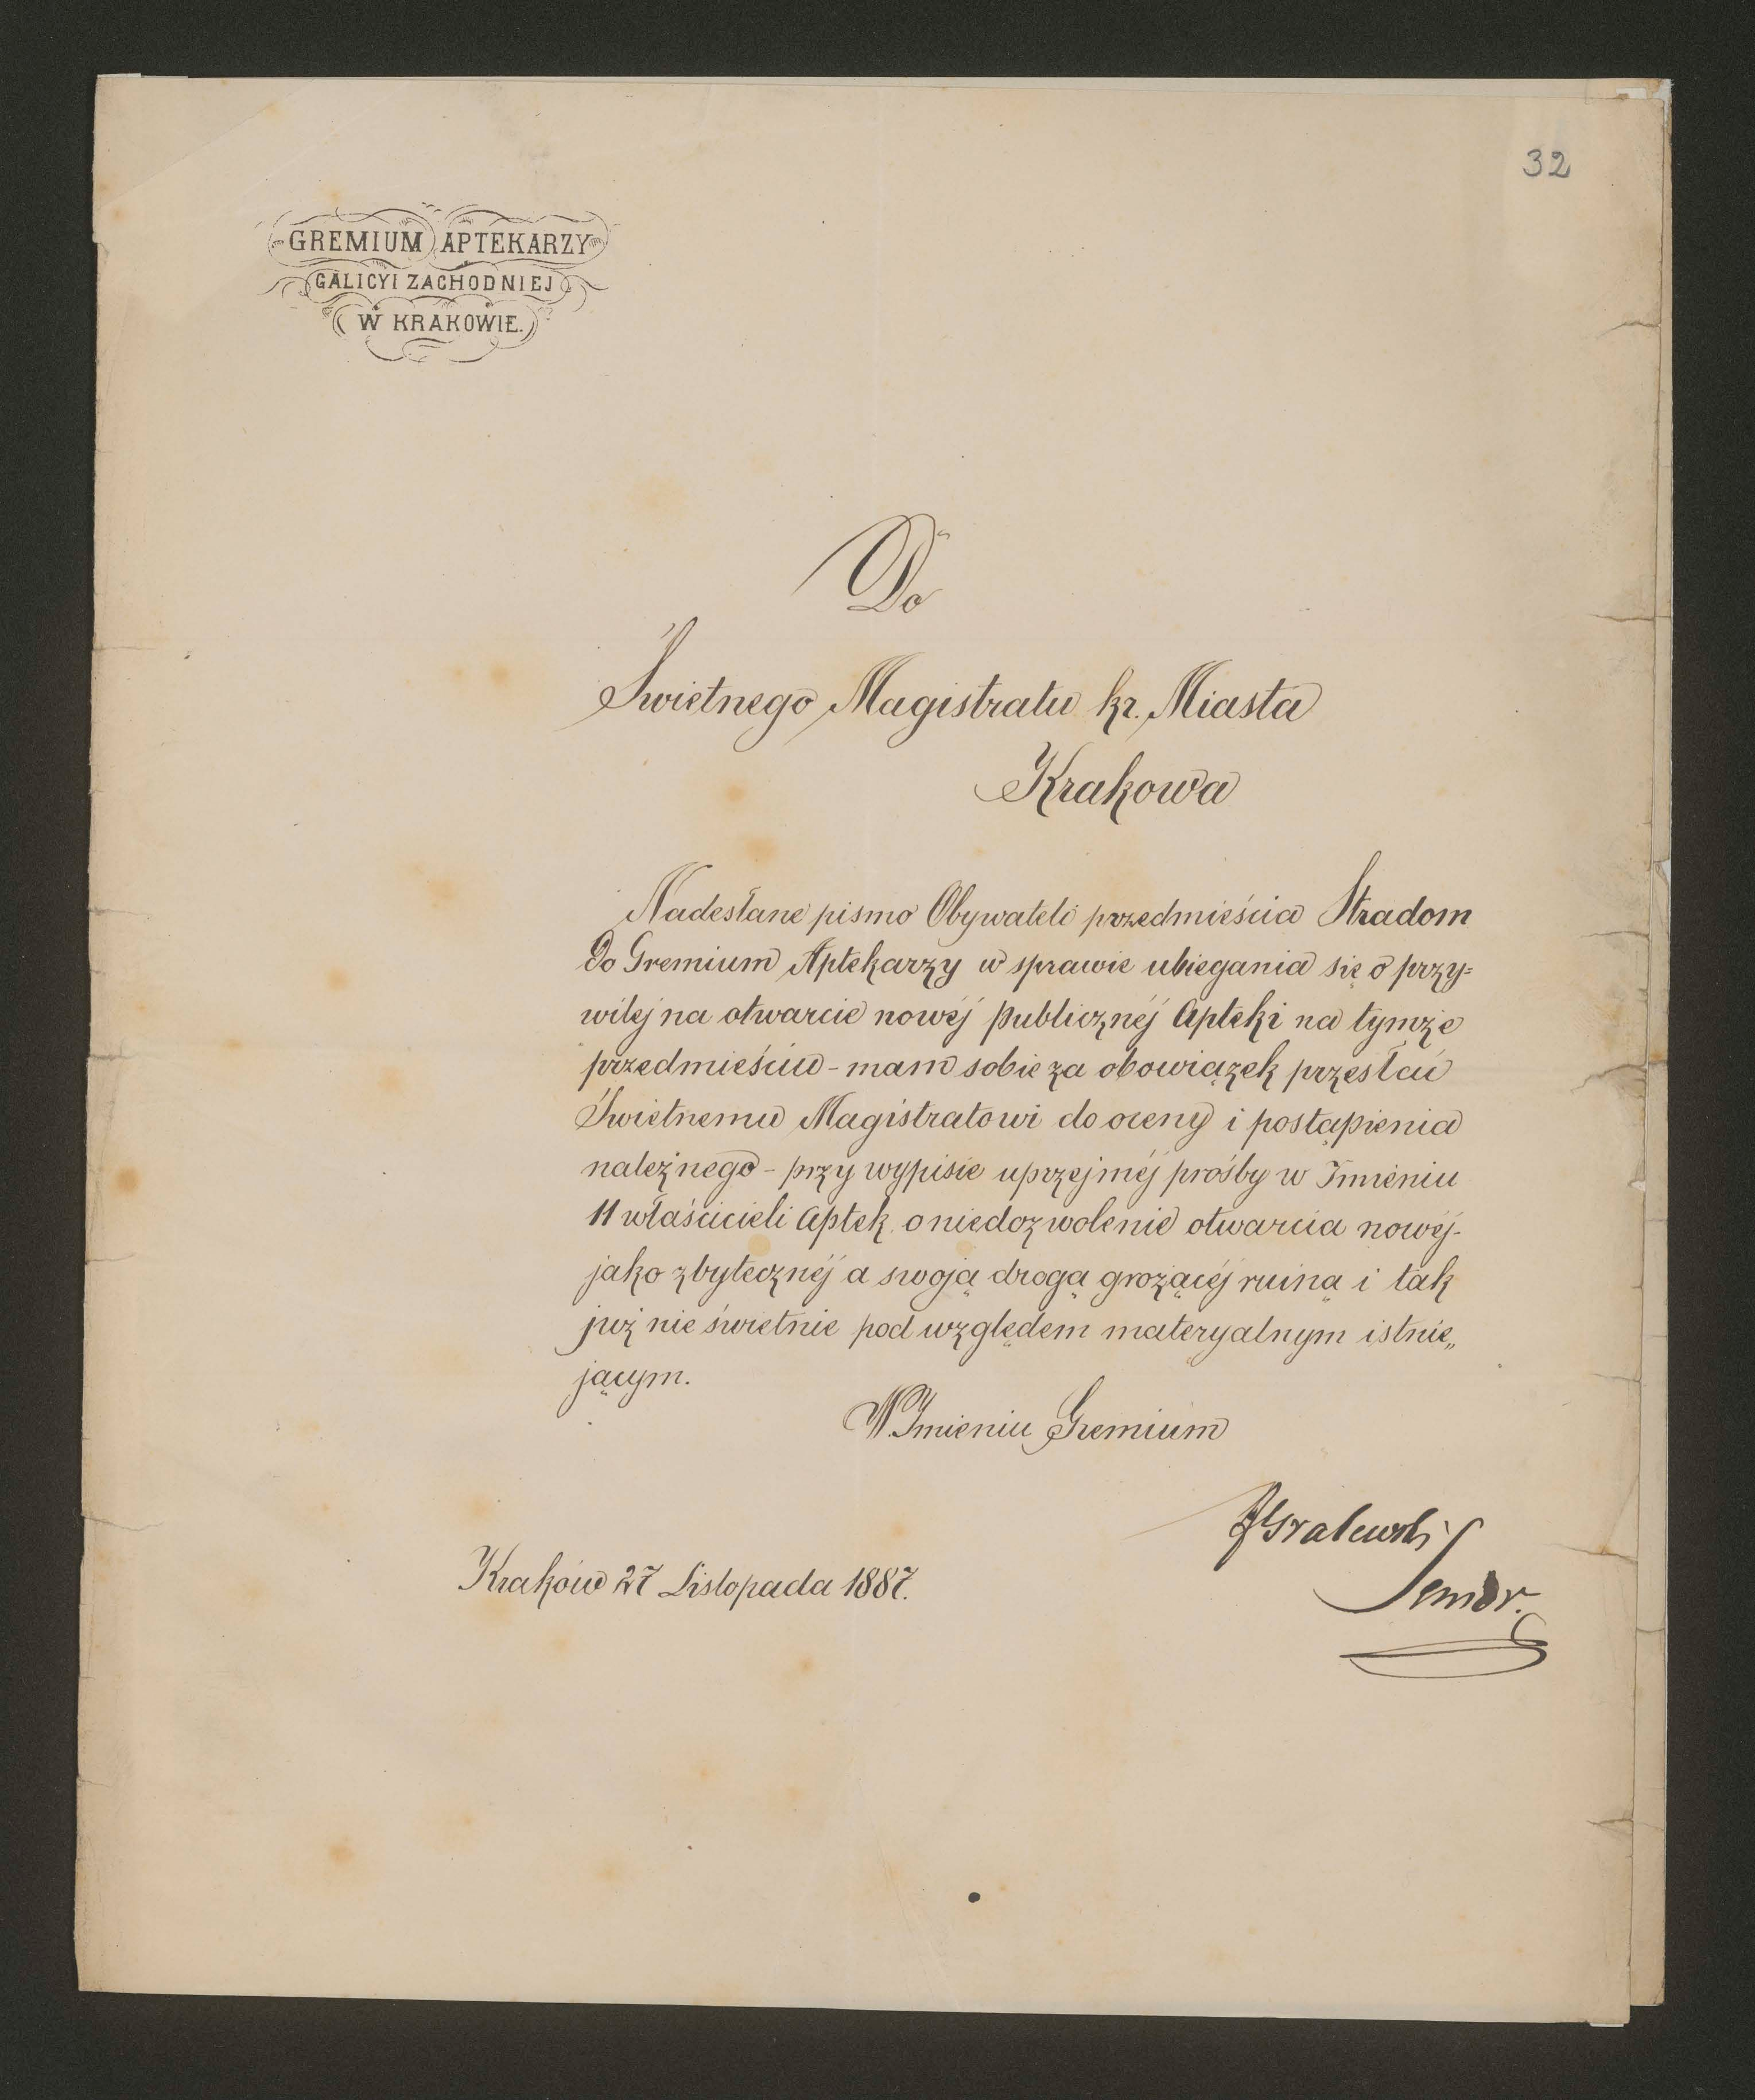 32
GREMIUM APTEKARZY
GALICYI ZACHODNIEJ
W KRAKOWIE.
Do
Świetnego Magistratu kr. Miasta
Krakowa
Nadesłane pismo Obywateli przedmieścia Stradom
Do Gremium Aptekarzy w sprawie ubiegania się o przy=
wilej na otwarcie nowéj publicznéj Apteki na tymże
przedmieściu - mam sobie za obowiązek przesłać
Świetnemu Magistratowi do oceny i postąpienia
należnego - przy wypisie uprzejméj prośby w Imieniu
11 właścicieli Aptek o niedozwolenie otwarcia nowéj -
jako zbytecznéj a swoją drogą grożącéj ruiną i tak
już nie świetnie pod względem materyalnym istnie„
jącym.
W Imieniu Gremium
FGralewski
Senior.
Kraków 27 Listopada 1887.